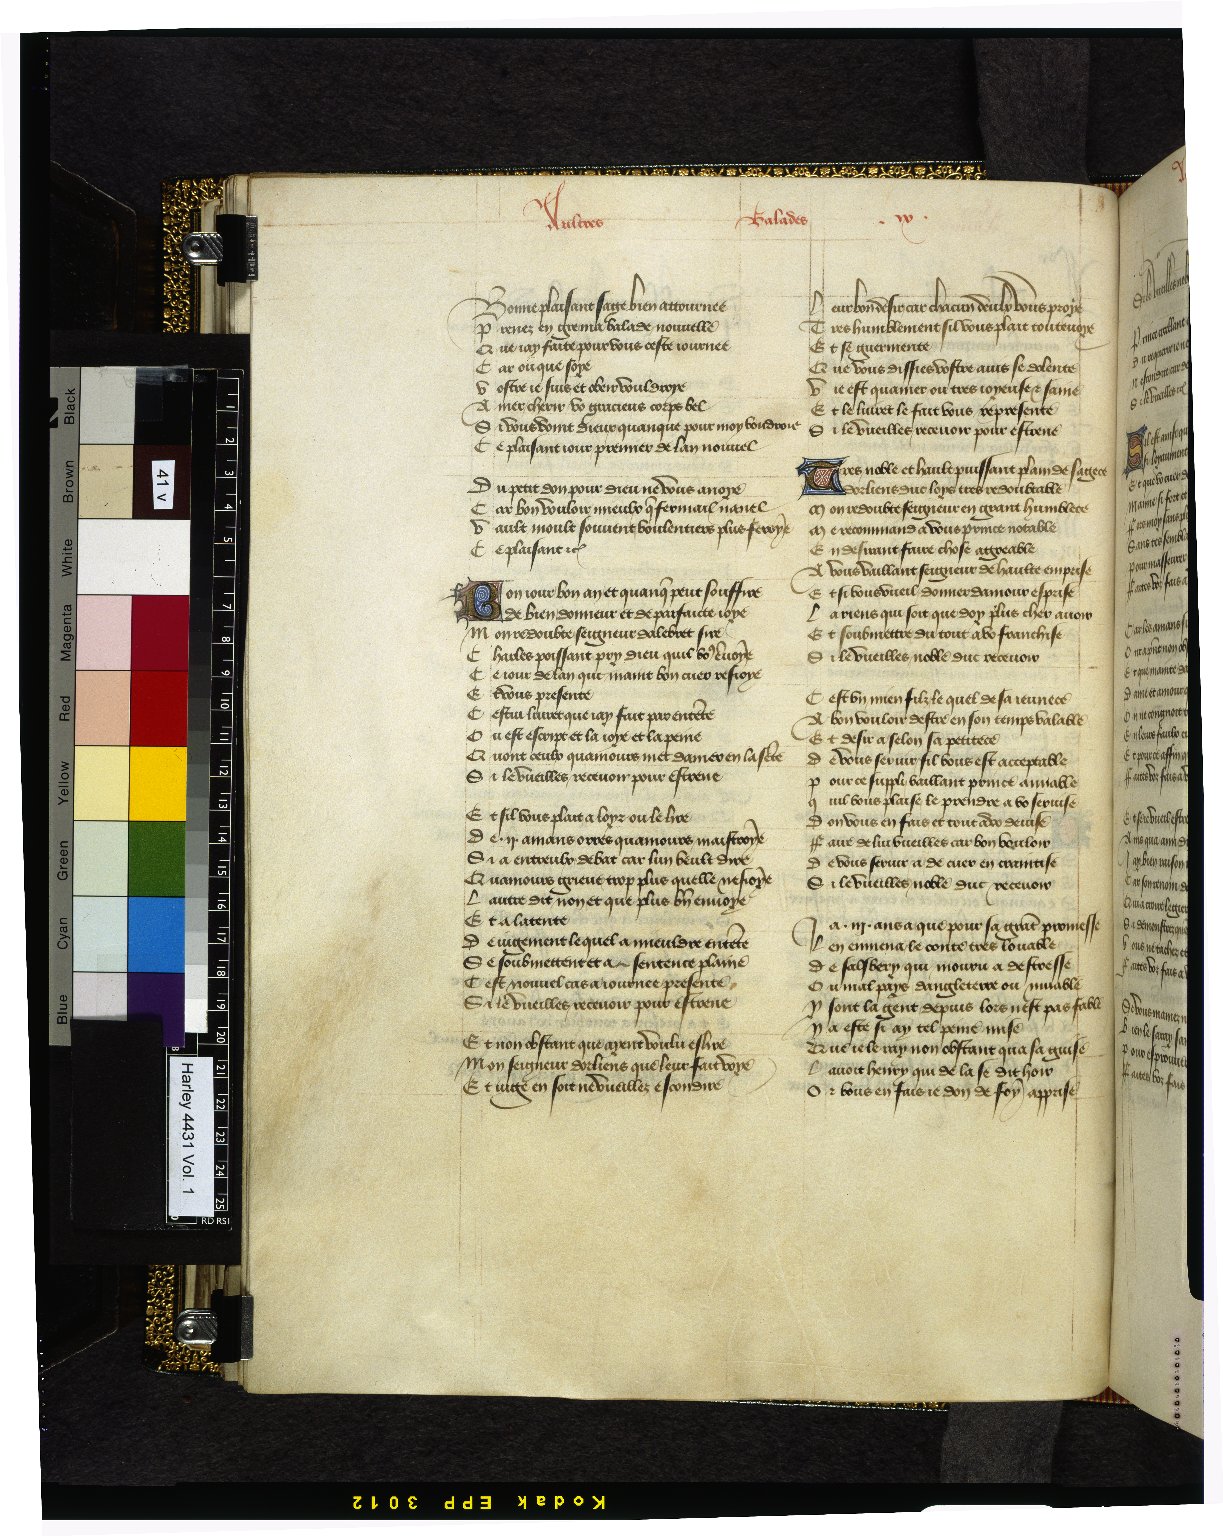 Aultres Balades .xx.
Bonne plaisant sage bien attournee
Prenez en gre ma balade nouvelle
Que iay faite pour vous ceste iournee
Car ou que soye
Vostre ie suis et obeir vouldroye
Amer cherir vo gracieus corps bel
Si vous doint dieux quanque pour moy vouldroie
Ce plaisant iour premier de lan nouvel
Du petit don pour dieu ne vous anoye
Car bon vouloir mieulx q̃ fermail nanel
Vault moult souvent voulentiers plus feroye
Ce plaisant etc
Bon iour bon an et quanq̃ peut souffire
de bien donneur et de parfaicte ioye
Mon redoubte seigneur dalebret sire
Charles poissant pry dieu quil vo9 ẽuoye
Ce iour de lan qui maint bon cuer resioye
Et vous presente
Cestui livret que iay fait par entẽte
Ou est escript et la ioye et la peine
Quont ceulx quamours met damer en la sẽte
Si le vueilles recevoir pour estrene
Et sil vous plaist a loyr ou le lire
De .ii. amans orrés quamours maistroye
Si a entreulx debat car lun veult dire
Quamours grieve trop plus quelle ne sioye
Lautre dit non et que plus bñ envoye
Et a latente
De iugement le quel a mieuldre entẽte
Se soubmettent et a sentence plaine
Cest nouvel cas a iournee presente
Si le vueilles recevoir pour estrene
Et non obstant que ayent voulu eslire
Mon seigneur dorliens que leur fait voye
Et iuge en soit ne vueillez escondire
Leur bon desir car chacun deulx vous proye
Tres humblement sil vous plait toutevoye
Et se guermente
Que vous dissies vostre avis se dolente
Vie est quamer ou tres ioyeuse z saine
Et le livret le fait vous represente
Si le vueilles recevoir pour estrene
Tres noble et hault puissant plain de sagece
dorliens duc loys tres redoubtable
Mon redoubte seigneur en grant humblece
Me recommand a vous prince notable
En desirant faire chose aggreable
A vous vaillant seigneur de haulte emprise
Et si vous vueil donner damour esprise
La riens qui soit que doy plus cher avoir
Et soubmettre du tout a vo franchise
Si le vueilles noble duc recevoir
Cest un mien filz le quel de sa ieunece
A bon vouloir destre en son temps valable
Et desir a selon sa petitece
De vous servir sil vous est acceptable
Pour ce suppli vaillant prince amiable
quil vous plaise le prendre a vo servise
Don vous en fais et tout a vo devise
ffaire de lui vueilles car bon vouloir
De vous servir a de cuer en craintise
Si le vueilles noble duc recevoir
Ja .iii. ans a que pour sa grãt promesse
Len enmena le conte tres louable
De salsbery qui mouru a destresse
Ou mal pays dangleterre ou muable
Y sont la gent depuis lors nest pas fable
Y a este si ay tel peine mise
Que ie le ray non obstant qua sa guise
Lavoit henry qui de la se dit hoir
Or vous en fais ie don de foy apprise
Black
Brown
White
Magenta
Red
Yellow
Green
Cyan
Blue
41 v
Harley 4431 Vol. 1
Kodak EPP 3012